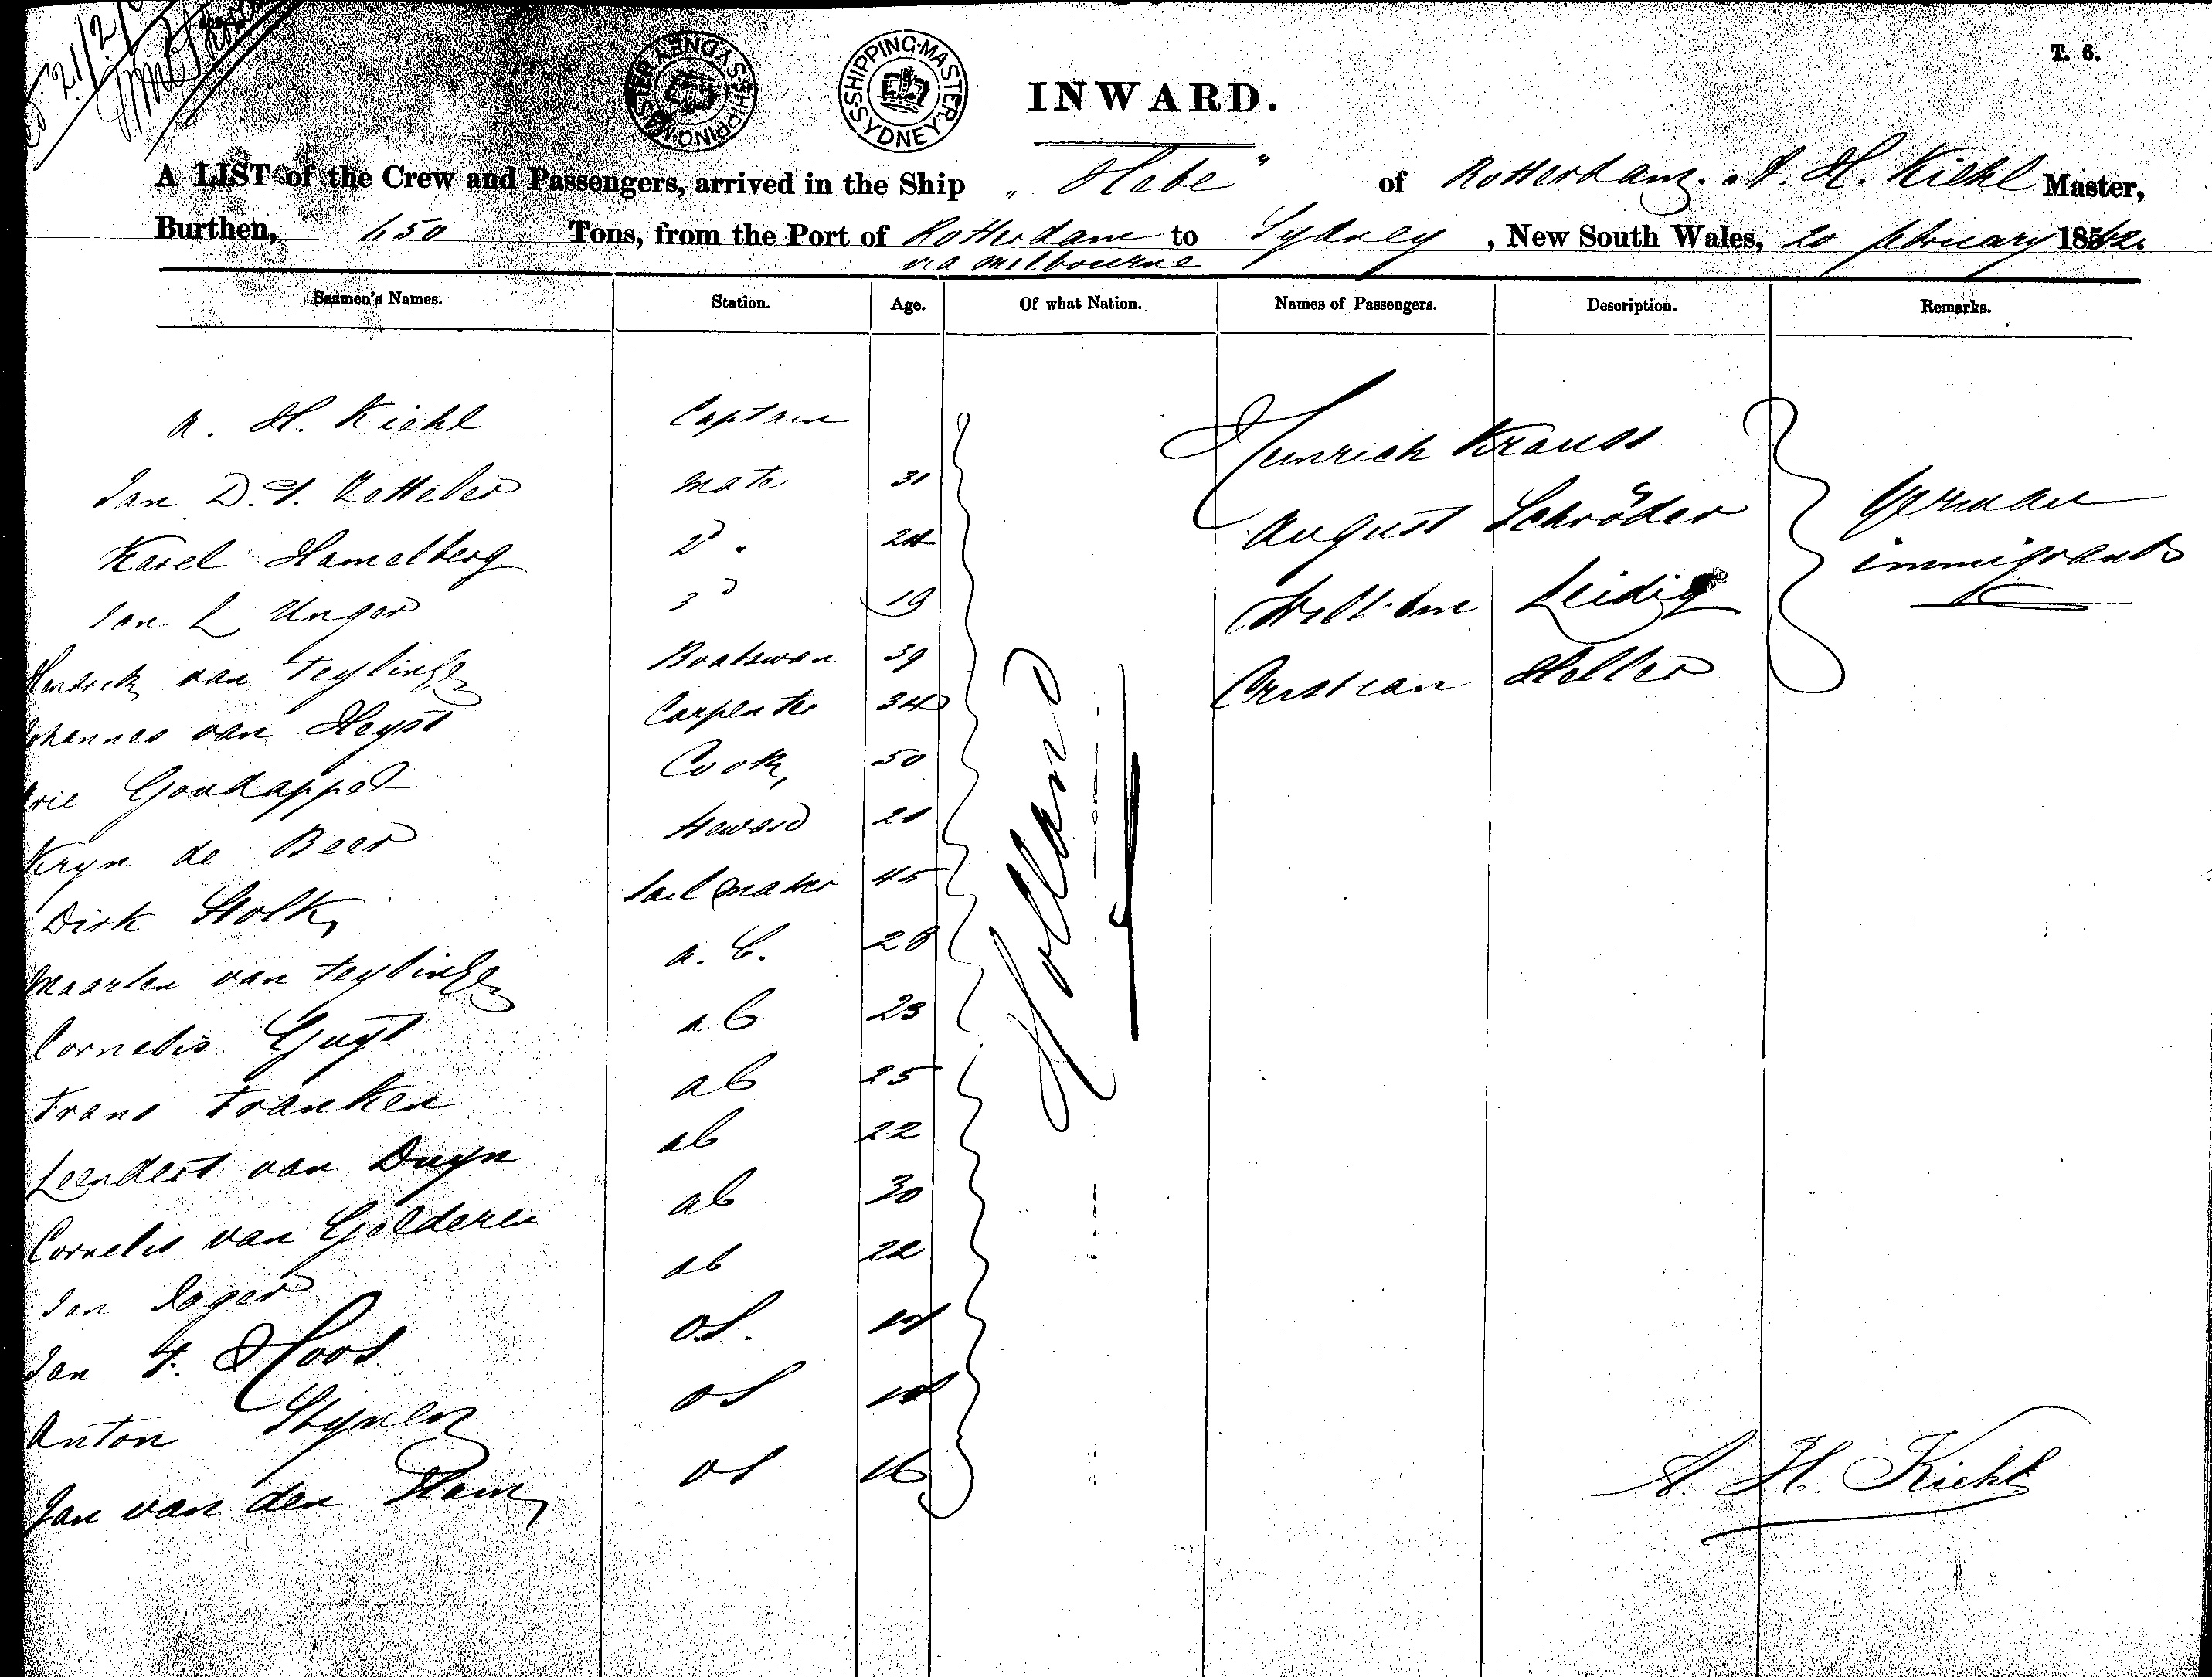 21/2/
T. 6.
SHIPPING MASTER SYDNEY
SHIPPING MASTER SYDNEY
INWARD.
A LIST of the Crew and Passengers, arrived in the Ship "Hebe" of Rotterdam. A. H. Kiehl Master,
Burthen, 650 Tons, from the Port of Rotterdam to Sydney, New South Wales, 20 february 1862.
via Melbourne
Seamen's Names. Station. Age. Of what Nation. Names of Passengers. Description. Remarks.
A. H. Kiehl Captain Heinrich Krauss
Jan D. Zetteler mate 31 August Schröder German
Karel Hamelberg 2d " 24 Wilhelm Leidig immigrants
Jan L Unger 3d 19 Cristian Heller
Hendrick van Teylingen Boatswan 39
Johannes van Heyst Carpenter 34
Arie Goudappel Cook 50
Kryn de Beer Steward 21
Dirk Stolk Sail maker 45
Maarten van Teylingen a. b. 28
Cornelis Guyt ab 23
Frans Franken ab 25
Leendert van Duyn ab 22
Cornelis van Gelderen ab 30
Jan Jager ab 22
Jan F. Hoos OS.
Anton Stynen OS
Jan van den Ham OS 16
Holland
A. H. Kiehl